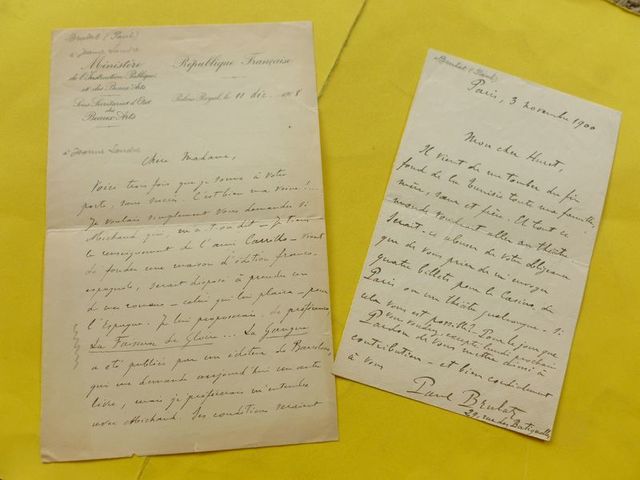 Brulat (Paul)
à Jeanne Landre
Ministère
de l'Instruction Publique
et des Beaux-Arts
Sous-Secrétariat d'État
des
Beaux-Arts
République Française
Palais-Royal, le 11 déc. 1918
à Jeanne Landre
Chère Madame,
Voici trois fois que je sonne à votre
porte, sans succès. C'est bien ma veine !...
Je voulais simplement vous demander si
Michaud qui, m'a-t-on dit - je tiens
le renseignement de l'ami Carrillo - vient
de fonder une maison d'édition franco-
espagnole, serait disposé à prendre un
de mes romans - celui qui lui plaira - pour
l'Espagne. Je lui proposerais, de préférence
La Faiseuse de Gloire... La Gangue
a été publiée par un éditeur de Barcelone
qui me demande aujourd'hui un autre
livre, mais je préférerais m'entendre
avec Michaud. Ses conditions seraient
Brulat (Paul)
Paris, 3 novembre 1900
Mon cher Huret,
Il vient de me tomber du fin
fond de la Tunisie toute ma famille,
mère, sœur et frère. Et tout ce
monde voudrait aller au théâtre.
Serait-ce abuser de votre obligeance
que de vous prier de m'envoyer
quatre billets pour le Casino de
Paris ou un théâtre quelconque - si
cela vous est possible ? Pour le jour que
vous voulez, excepté lundi prochain
Pardon de vous mettre ainsi à
contribution - et bien cordialement
à vous
Paul Brulat
32, rue des Batignolles